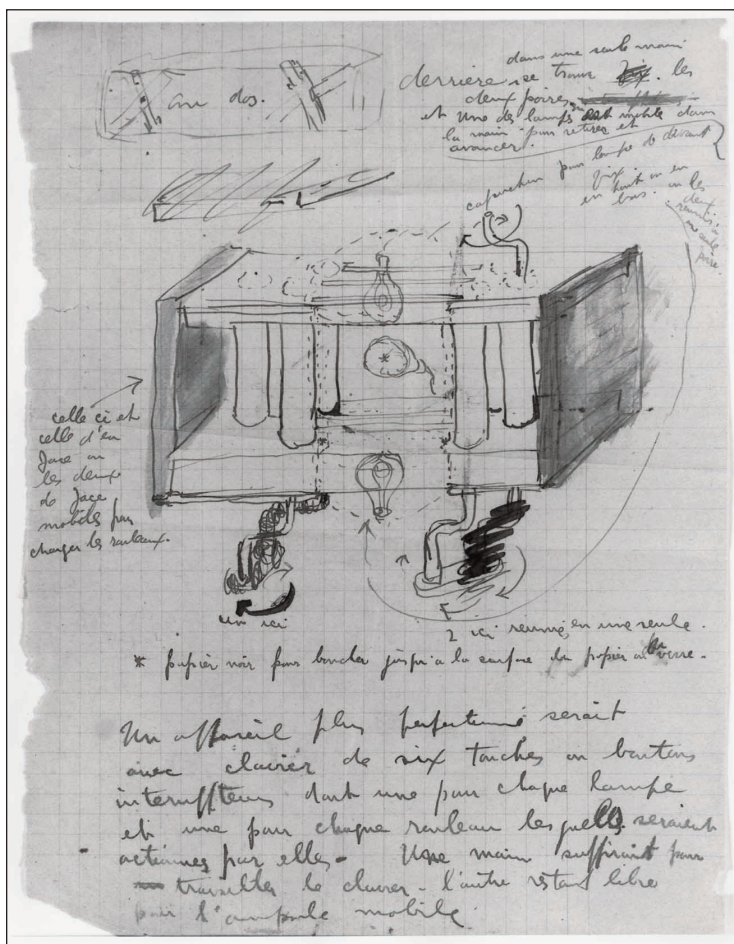 au dos.
dans une seule main
derrière, se trouve les
deux poires,
et une des lampes est mobile dans
la main pour retirer et
avancer.
capuchon pour lampe de devant
fix.
en haut ou en
bas. ou les
deux
reunis à
une seule
poire.
celle ci et
celle d'en
face ou
les deux
de face
mobiles pour
changer les rouleaux.
un ici
2 ici reunis en une seule.
* papier noir pour boucher jusqu'a la surface du papier ou verre.
Un appareil plus perfectionné serait
avec clavier de six touches ou boutons
interrupteurs dont une pour chaque lampe
et une pour chaque rouleau lesquelles seraient
actionnés par elles. Une main suffirait pour
travailler le clavier. l'autre restant libre
pour l'ampoule mobile.